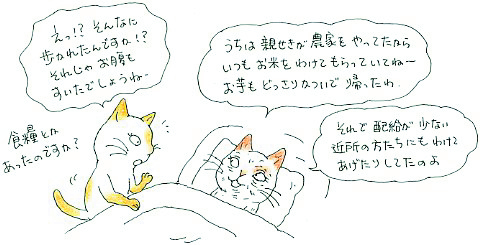 えっ!? そんなに
歩かれたんですか!?
それじゃ お腹も
すいたでしょうねー
食糧とか
あったのですか?
うちは 親せきが 農家を やってたから
いつも お米を わけてもらっていてねー
お芋も どっさりかついで 帰ったわ
それで 配給が 少ない
近所の方たちにも わけて
あげたりしてたのよ